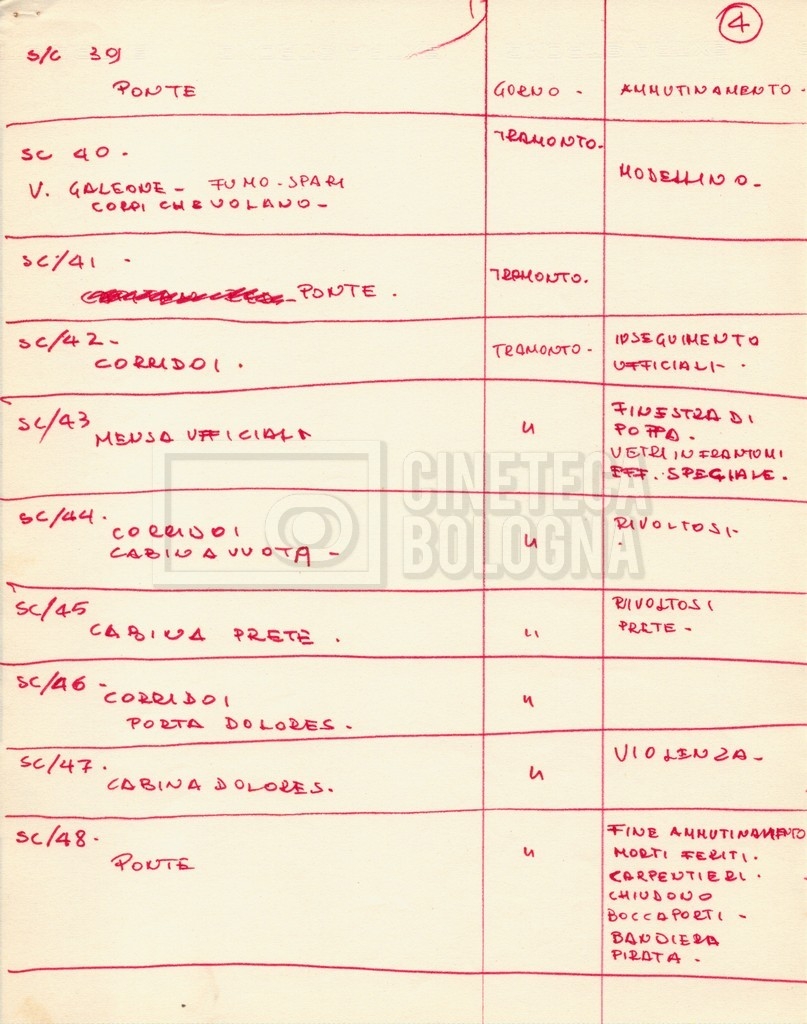 4
S/C 39
PONTE
GORNO -
AMMUTINAMENTO -
SC 40 -
V. GALEONE - FUMO - SPARI
CORPI CHE VOLANO -
TRAMONTO -
MODELLINO -
SC/41 -
PONTE .
TRAMONTO.
SC/42 -
CORRIDOI .
TRAMONTO -
INSEGUIMENTO
UFFICIALI - .
SC/43
MENSA UFFICIALI
"
FINESTRA DI
POPPA.
VETRI INFRANTUMI
EFF. SPECIALE.
SC/44.
CORRIDOI
CABINA VUOTA -
"
RIVOLTOSI -
SC/45
CABINA PRETE .
"
RIVOLTOSI
PRETE -
SC/46 -
CORRIDOI
PORTA DOLORES -
"
SC/47.
CABINA DOLORES.
"
VIOLENZA -
SC/48 -
PONTE
"
FINE AMMUTINAMENTO
MORTI FERITI.
CARPENTIERI .
CHIUDONO
BOCCAPORTI -
BANDIERA
PIRATA -
CINETECA
BOLOGNA